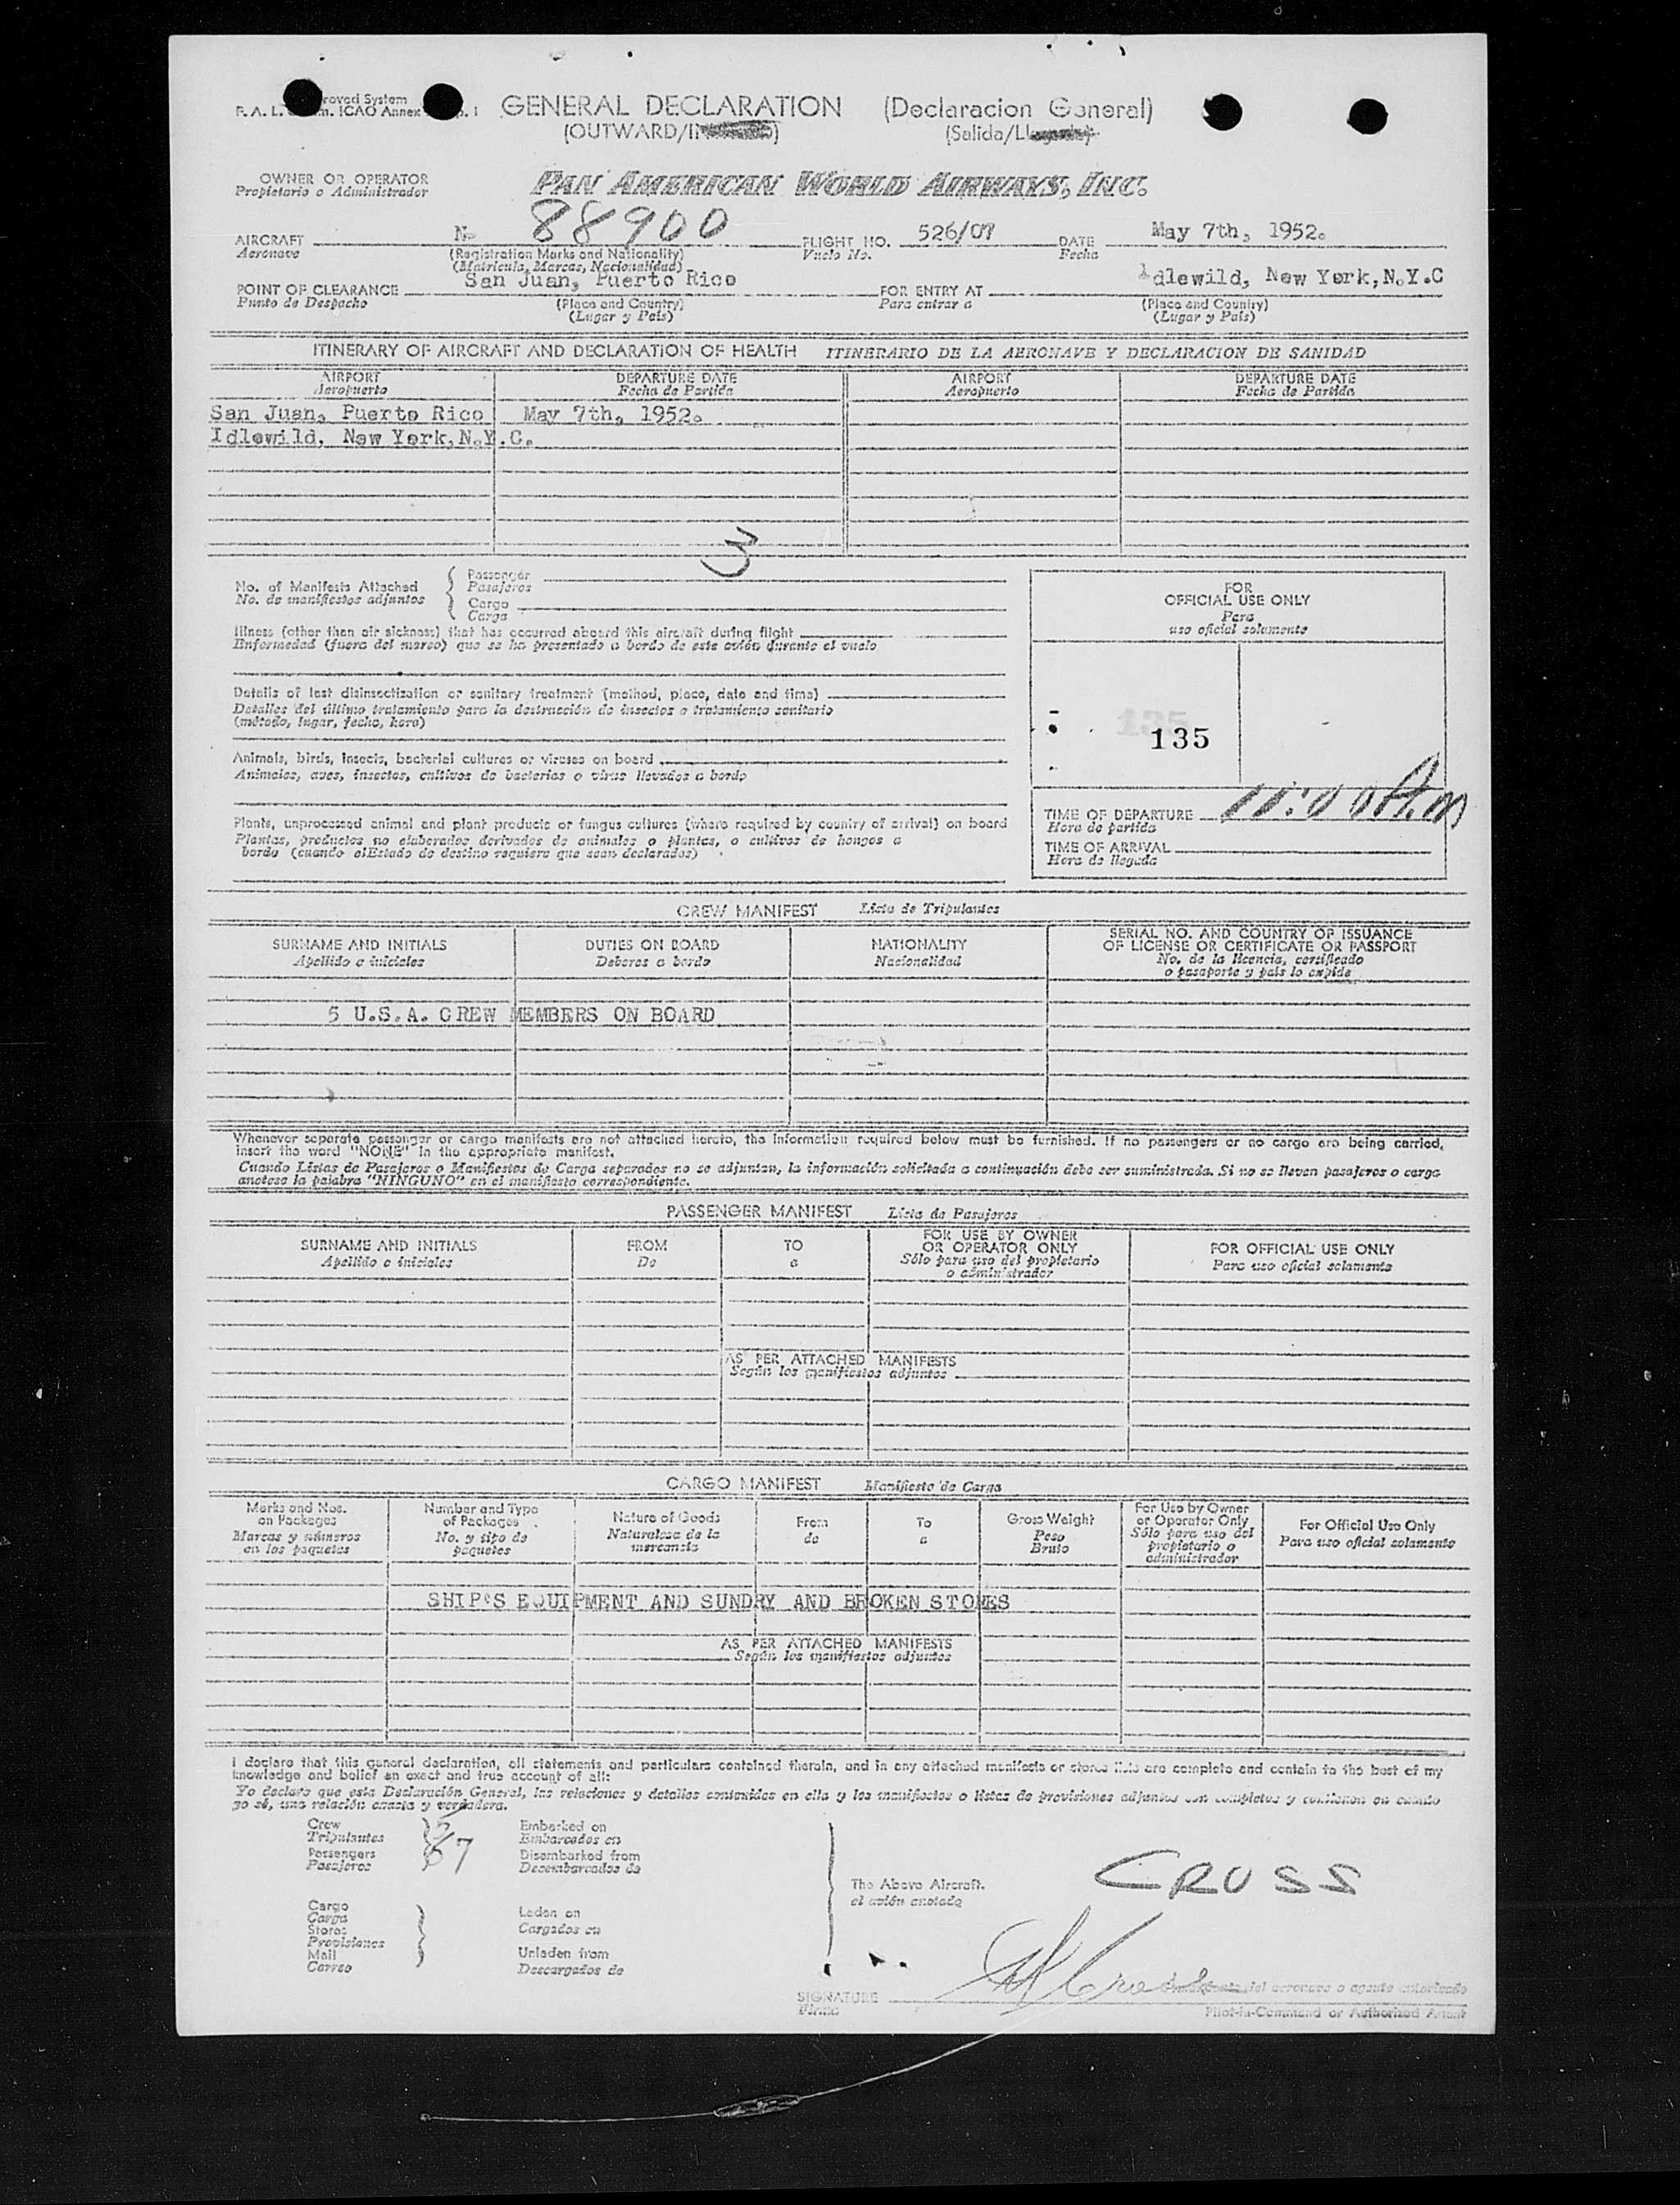 GENERAL DECLARATION (Declaracion General)
(OUTWARD/ (Salida/
OWNER OR OPERATOR PAN AMERICAN WORLD AIRWAYS, INC.
Propietario o Administrador
AIRCRAFT N- 88900 FLIGHT NO. 526/07 DATE May 7th, 1952.
Aeronave (Registration Marks and Nationality) Vuelo No. Fecha
(Matricula, Marcas, Nacionalidad)
POINT OF CLEARANCE San Juan, Puerto Rico FOR ENTRY AT Idlewild, New York,N.Y.C
Punto de Despacho (Place and Country) Para entrar a (Place and Country)
(Lugar y País) (Lugar y País)
ITINERARY OF AIRCRAFT AND DECLARATION OF HEALTH ITINERARIO DE LA AERONAVE Y DECLARACION DE SANIDAD
AIRPORT DEPARTURE DATE AIRPORT DEPARTURE DATE
Aeropuerto Fecha de Partida Aeropuerto Fecha de Partida
San Juan, Puerto Rico May 7th, 1952.
Idlewild, New York,N.Y.C.
3
No. of Manifests Attached Passenger
No. de manifiestos adjuntos Pasajeros
Cargo
Carga
Illness (other than air sickness) that has occurred aboard this aircraft during flight
Enfermedad (fuera del mareo) que se ha presentado a bordo de este avión durante el vuelo
Details of last disinsectization or sanitary treatment (method, place, date and time)
Detalles del último tratamiento para la destrucción de insectos o tratamiento sanitario
(método, lugar, fecha, hora)
Animals, birds, insects, bacterial cultures or viruses on board
Animales, aves, insectos, cultivos de bacterias o virus llevados a bordo
Plants, unprocessed animal and plant products or fungus cultures (where required by country of arrival) on board
Plantas, productos no elaborados derivados de animales o plantas, o cultivos de hongos a
bordo (cuando elEstado de destino requiere que sean declarados)
FOR
OFFICIAL USE ONLY
Para
uso oficial solamente
135
TIME OF DEPARTURE 11:00 A.m
Hora de partida
TIME OF ARRIVAL
Hora de llegada
CREW MANIFEST Lista de Tripulantes
SURNAME AND INITIALS DUTIES ON BOARD NATIONALITY SERIAL NO. AND COUNTRY OF ISSUANCE
Apellido e iniciales Deberes a bordo Nacionalidad OF LICENSE OR CERTIFICATE OR PASSPORT
No. de la licencia, certificado
o pasaporte y país lo expide
5 U.S.A. CREW MEMBERS ON BOARD
Whenever separate passenger or cargo manifests are not attached hereto, the information required below must be furnished. If no passengers or no cargo are being carried,
insert the word "NONE" in the appropriate manifest.
Cuando Listas de Pasajeros o Manifiestos de Carga separados no se adjuntan, la información solicitada a continuación debe ser suministrada. Si no se llevan pasajeros o carga
anotese la palabra "NINGUNO" en el manifiesto correspondiente.
PASSENGER MANIFEST Lista de Pasajeros
SURNAME AND INITIALS FROM TO FOR USE BY OWNER FOR OFFICIAL USE ONLY
Apellido e iniciales De a OR OPERATOR ONLY Para uso oficial solamente
Sólo para uso del propietario
o administrador
AS PER ATTACHED MANIFESTS
Según los manifiestos adjuntos
CARGO MANIFEST Manifiesto de Carga
Marks and Nos. Number and Type Nature of Goods From To Gross Weight For Use by Owner For Official Use Only
on Packages of Packages Naturalesa de la de a Peso or Operator Only Para uso oficial solamente
Marcas y números No. y tipo de mercancía Bruto Sólo para uso del
en los paquetes paquetes propietario o
administrador
SHIP'S EQUIPMENT AND SUNDRY AND BROKEN STORES
AS PER ATTACHED MANIFESTS
Según los manifiestos adjuntos
I declare that this general declaration, all statements and particulars contained therein, and in any attached manifests or stores lists are complete and contain to the best of my
knowledge and belief an exact and true account of all:
Yo declaro que esta Declaración General, las relaciones y detalles contenidos en ella y los manifiestos o listas de provisiones adjuntos son completos y contienen en cuanto
yo sé, una relación exacta y verdadera.
Crew 5 Embarked on
Tripulantes Embarcados en
Passengers 67 Disembarked from
Pasajeros Desembarcados de
The Above Aircraft. CRUSS
el avión anotado
Cargo
Carga Laden on
Stores Cargados en
Provisiones
Mail Unladen from
Correo Descargados de
SIGNATURE del aeronave o agente autorizado
Firma Pilot-in-Command or Authorized Agent